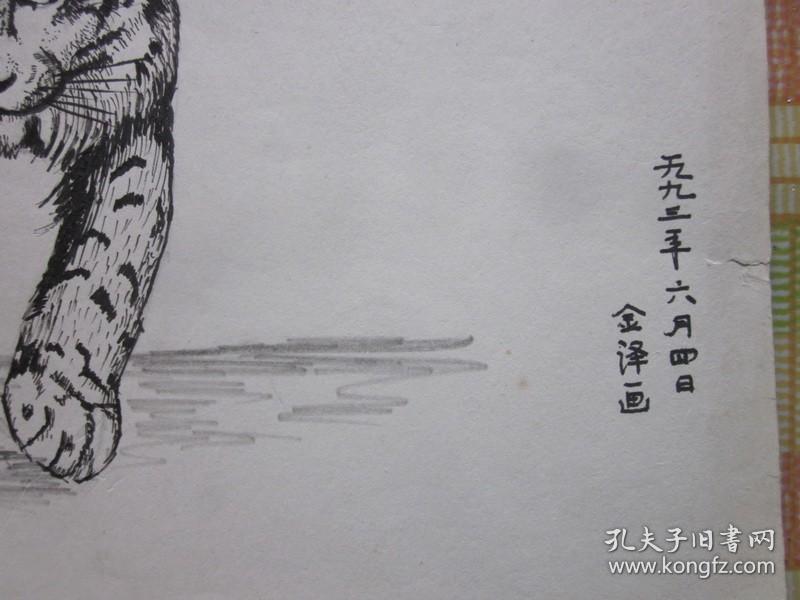 一九九三年六月四日
金泽画
孔夫子旧书网
www.kongfz.com